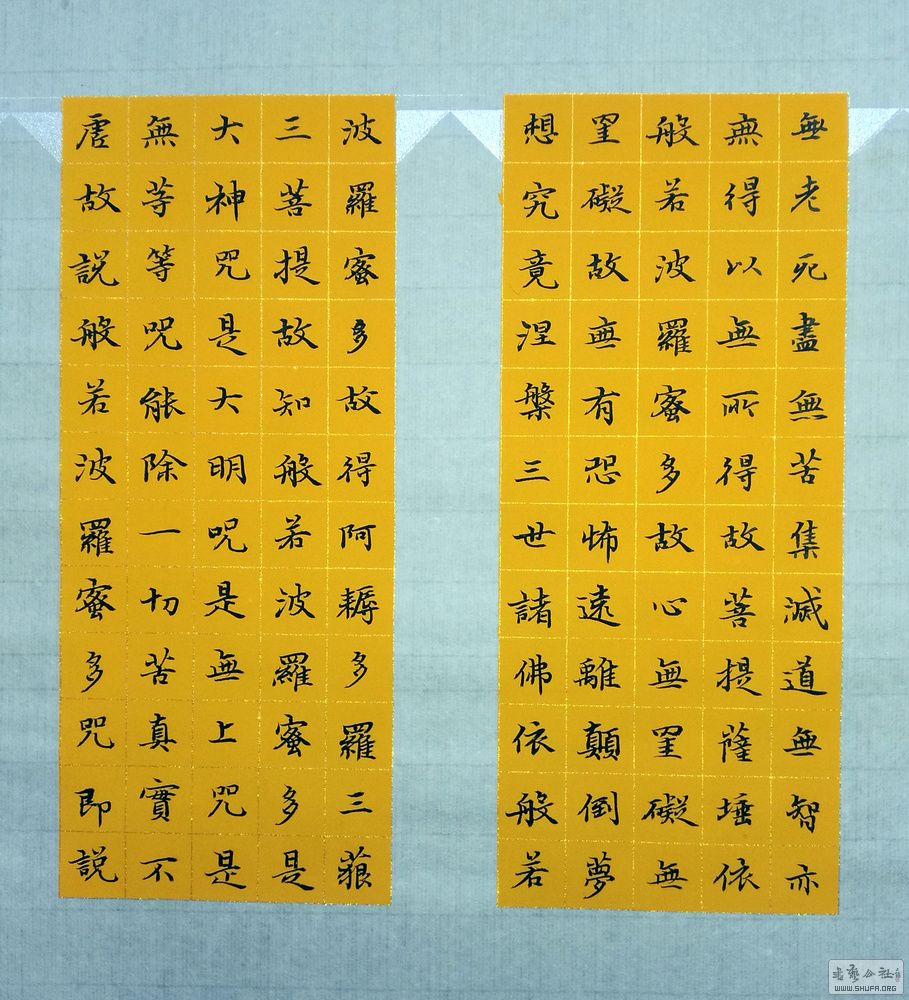 無老死盡無苦集滅道無智亦
無得以無所得故菩提薩埵依
般若波羅蜜多故心無罣礙無
罣礙故無有恐怖遠離顛倒夢
想究竟涅槃三世諸佛依般若
波羅蜜多故得阿耨多羅三藐
三菩提故知般若波羅蜜多是
大神咒是大明咒是無上咒是
無等等咒能除一切苦真實不
虛故說般若波羅蜜多咒即說
WWW.SHUFA.ORG